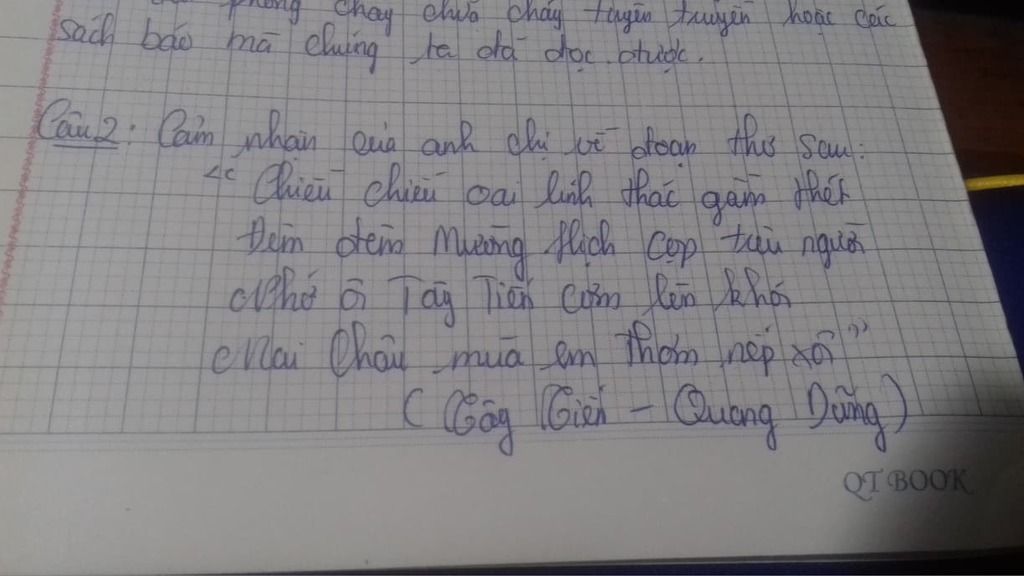 phòng cháy chữa cháy tuyên truyền hoặc các
sách báo mà chúng ta đã đọc được.
Câu 2: Cảm nhận của anh chị về đoạn thơ sau:
"Chiều chiều oai linh thác gầm thét
Đêm đêm Mường Hịch cọp trêu người
Nhớ ôi Tây Tiến cơm lên khói
Mai Châu mùa em thơm nếp xôi"
(Tây Tiến - Quang Dũng)
QT BOOK